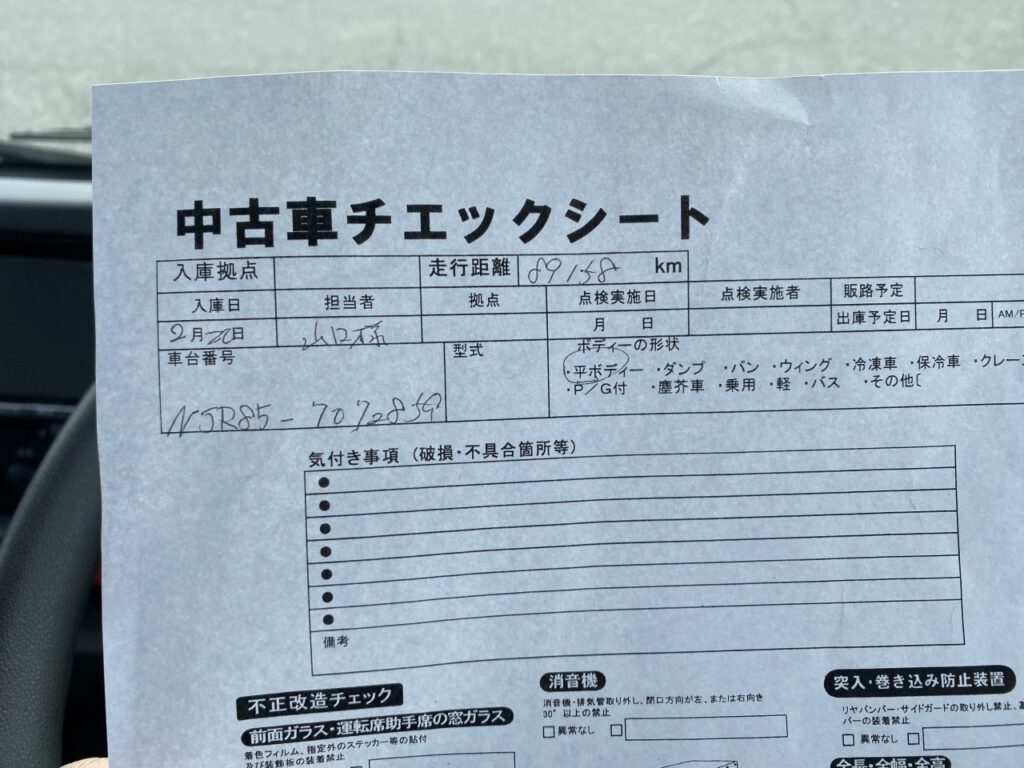 中古車チエックシート
入庫拠点 走行距離 89158 km
入庫日 担当者 拠点 点検実施日 点検実施者 販路予定
2月20日 山口様 月 日 出庫予定日 月 日 AM/P
車台番号 型式 ボディーの形状
NJR85-7072859 ・平ボディー ・ダンプ ・バン ・ウィング ・冷凍車 ・保冷車 ・クレーン
・P/G付 ・塵芥車 ・乗用 ・軽 ・バス ・その他[
気付き事項(破損・不具合箇所等)
備考
不正改造チェック
消音機
突入・巻き込み防止装置
前面ガラス・運転席助手席の窓ガラス
消音機・排気管取り外し、開口方向が左、または右向き
30°以上の禁止
リヤバンパー・サイドガードの取り外し禁止、
バーの装着禁止
着色フィルム、指定外のステッカー等の貼付
及び装飾板の装着禁止
□異常なし □
□ 異常なし □
全長・全幅・全高